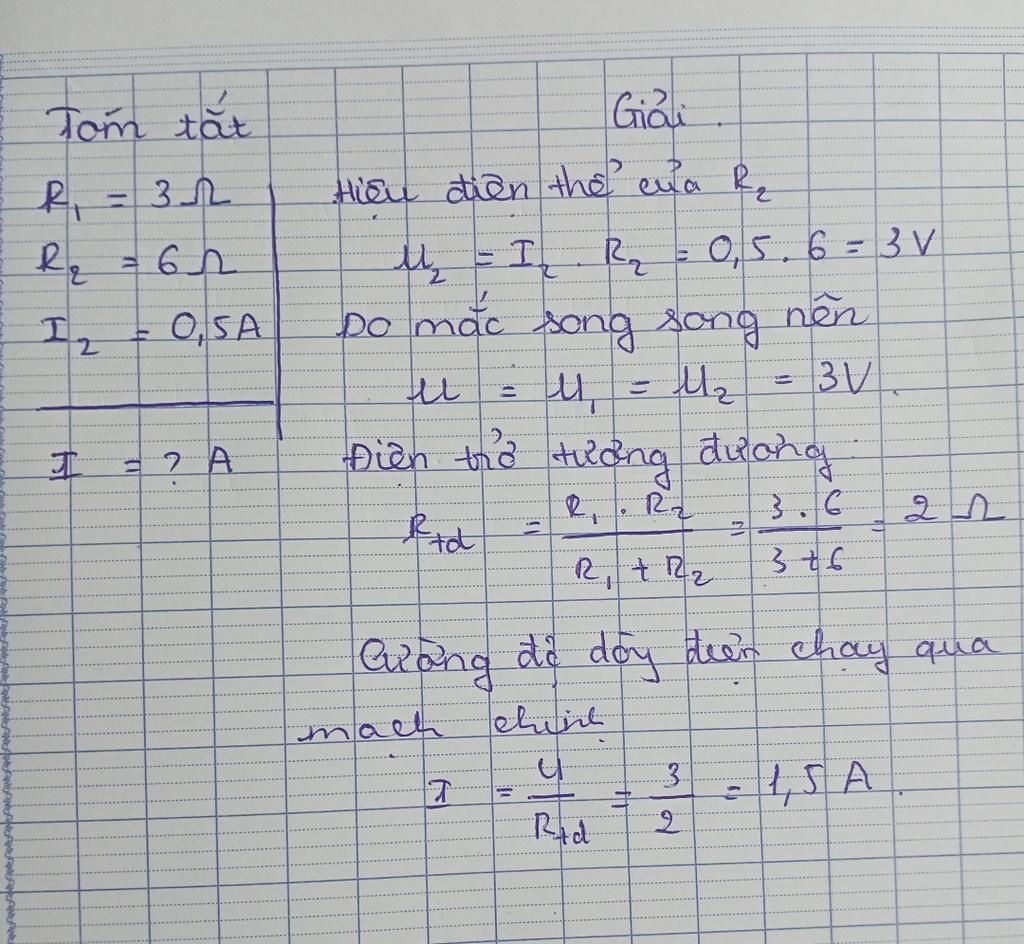 Tóm tắt
R₁ = 3Ω
R₂ = 6Ω
I₂ = 0,5A
I = ? A
Giải.
Hiệu điện thế của R₂
U₂ = I₂ . R₂ = 0,5 . 6 = 3V
Do mắc song song nên
U = U₁ = U₂ = 3V.
Điện trở tương đương:
R_tđ = (R₁ . R₂)/(R₁ + R₂) = (3 . 6)/(3 + 6) = 2 Ω
Cường độ dòng điện chạy qua
mạch chính
I = U/R_tđ = 3/2 = 1,5 A.